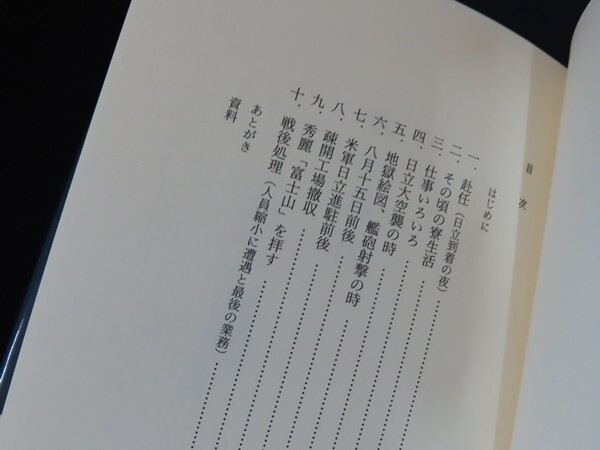 目次
はじめに
一、赴任（日立到着の夜）
二、その頃の寮生活
三、仕事いろいろ
四、日立大空襲の時
五、地獄絵図、艦砲射撃の時
六、八月十五日前後
七、米軍日立進駐前後
八、疎開工場撤収
九、秀麗「富士山」を拝す
十、戦後処理（人員縮小に遭遇と最後の業務）
あとがき
資料